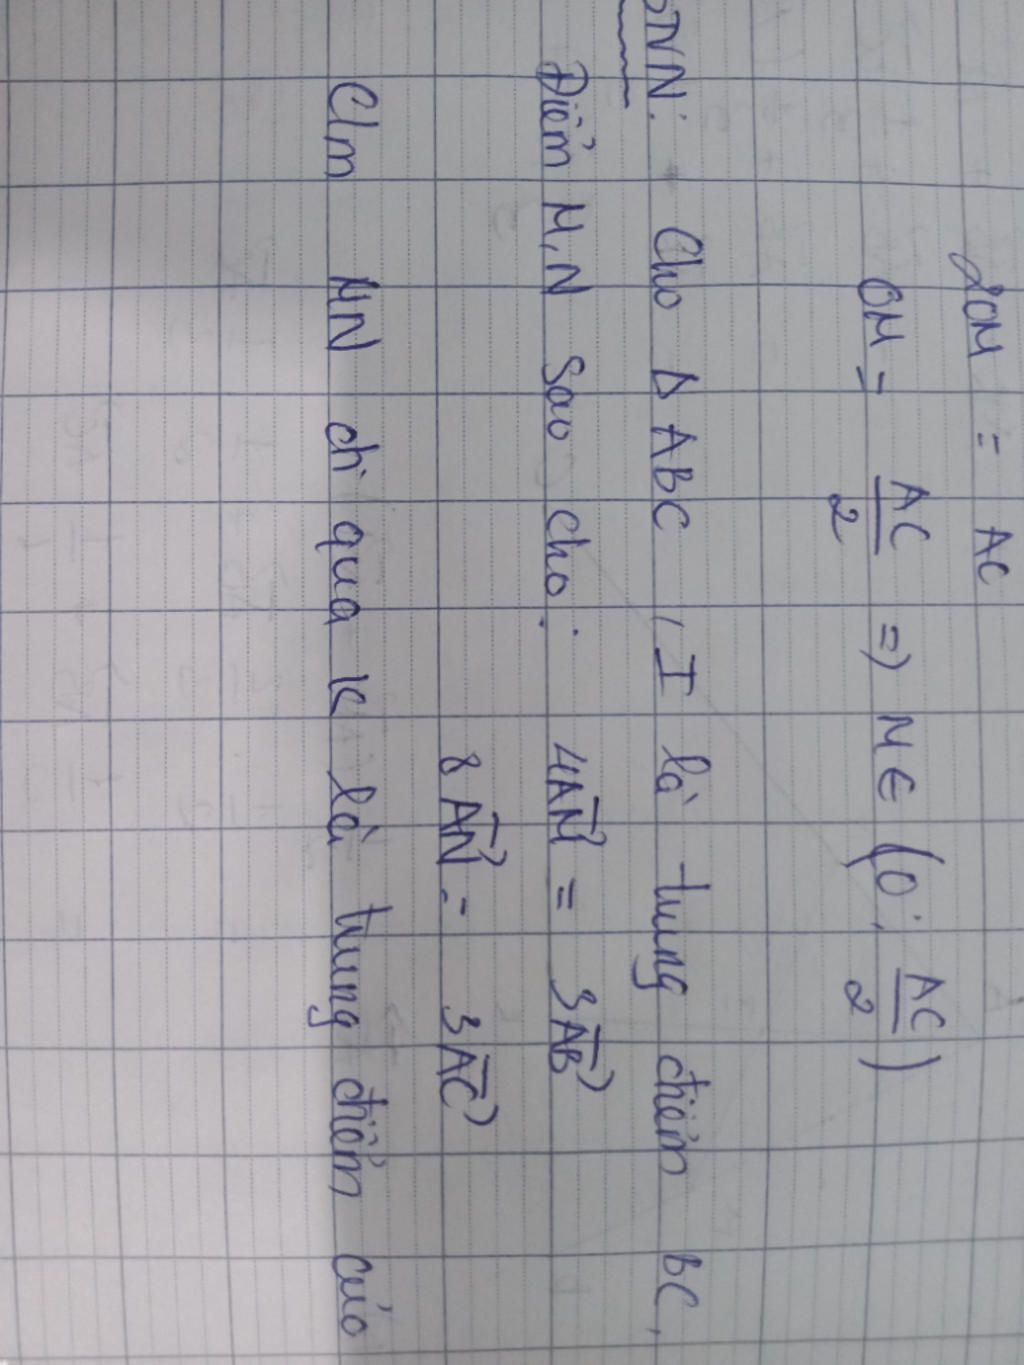 2OM = AC
OM = AC/2 => M ∈ (O; AC/2)
BTVN: Cho Δ ABC, I là trung điểm BC,
Điểm M, N sao cho: 4AM⃗ = 3AB⃗
8AN⃗ = 3AC⃗
C/m MN đi qua K là trung điểm của